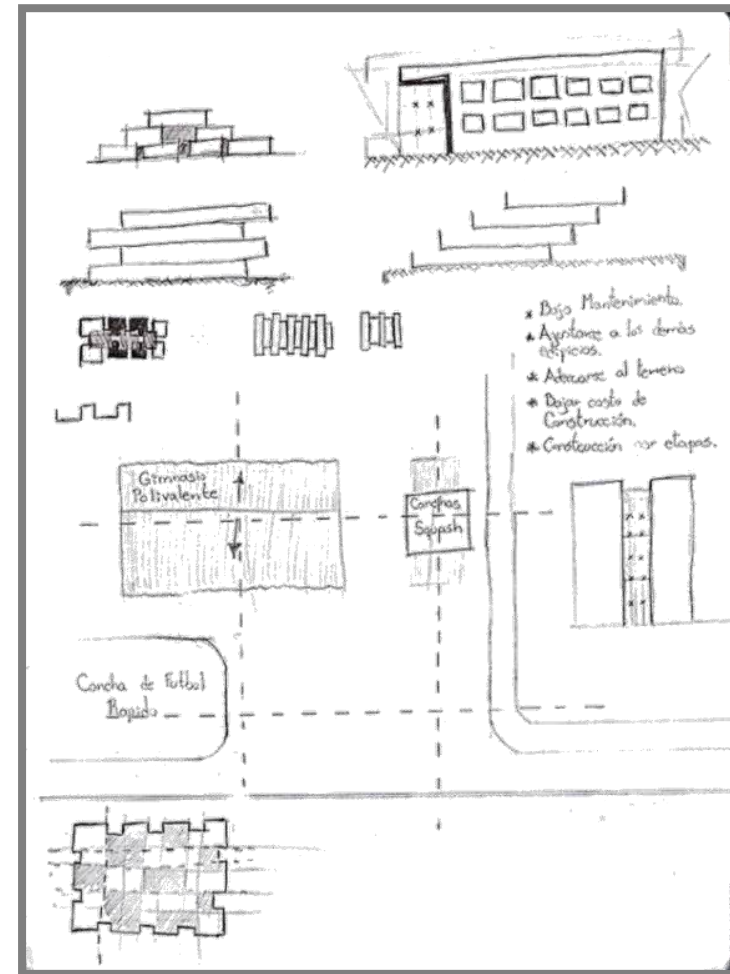 * Bajo Mantenimiento.
* Ajustarse a los demás
edificios.
* Adecuarse al terreno
* Bajar costo de
Construcción.
* Construcción por etapas.
Gimnasio
Polivalente
Canchas
Squash
Cancha de Futbol
Rapido